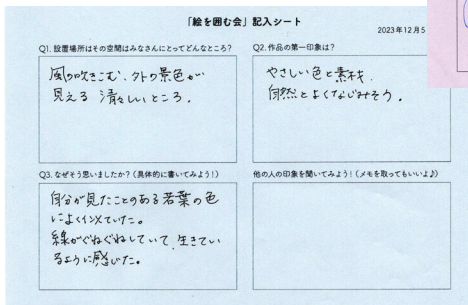 「絵を囲む会」記入シート
2023年12月5
Q1. 設置場所はその空間はみなさんにとってどんなところ?
風の吹きこむ、外の景色が
見える 清々しいところ。
Q2. 作品の第一印象は?
やさしい色と素材、
自然とよくなじみそう。
Q3. なぜそう思いましたか?(具体的に書いてみよう!)
自分が見たことのある若葉の色
によく似ていた。
線がぐねぐねしていて、生きてい
るように感じた。
他の人の印象を聞いてみよう!(メモを取ってもいいよ♪)